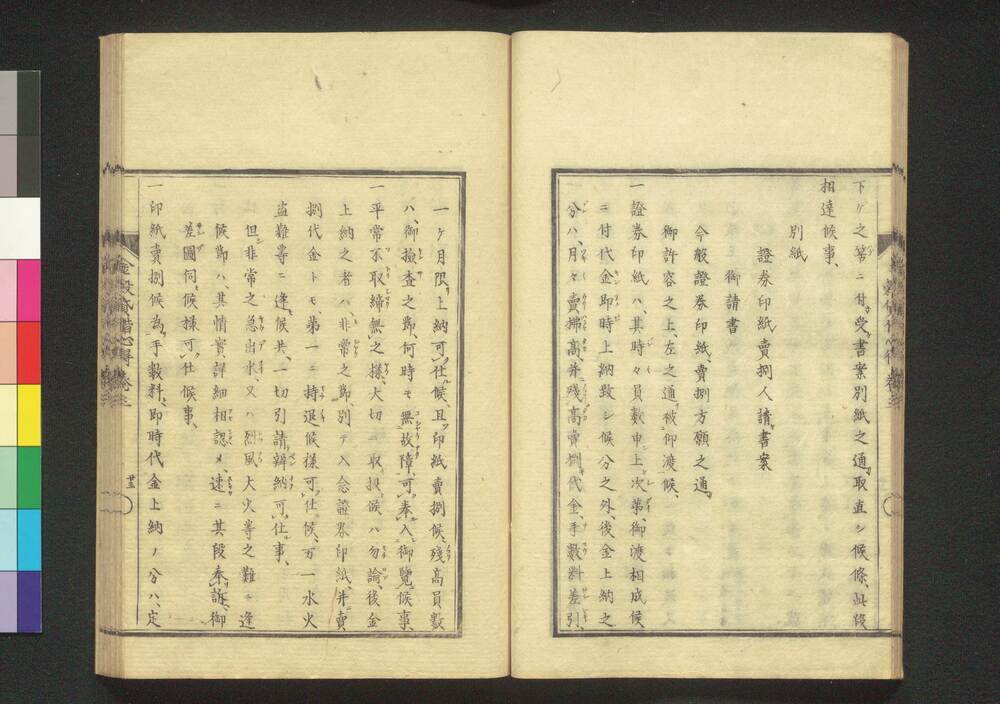 下ケ之筈ニ付、受書案別紙之通取直シ候條、此段
相達候事、
別紙
證券印紙賣捌人請書案
御請書
今般證券印紙、賣捌方願之通
御許容之上、左之通被仰渡候、
一證券印紙ハ、其時々員數申上、次第御渡相成候
ニ付代金即時上納致シ候分之外、後金上納之
分ハ、月々賣拂高、并殘高賣捌代金、手數料差引、
一ケ月限上納可仕候、且印紙賣捌候、殘高員數
ハ、御撿査之節、何時モ無故障、可奉入御覽候事、
一平常不取締無之様、大切ニ取扱候ハ勿論、後金
上納之者ハ、非常之節、別テ入念證券印紙、并賣
捌代金トモ、第一ニ持退候様可仕候、万一水火
盗難等ニ逢候共、一切引請辨納可仕事、
但非常之急出水、又ハ烈風大火等之難ニ逢
候節ハ、其情實、詳細相認メ、速ニ其段奉訴、御
差圖伺候様可仕候事、
一印紙賣捌候為手數料、即時代金上納ノ分ハ、定
金穀出納心得 卷三
廿三